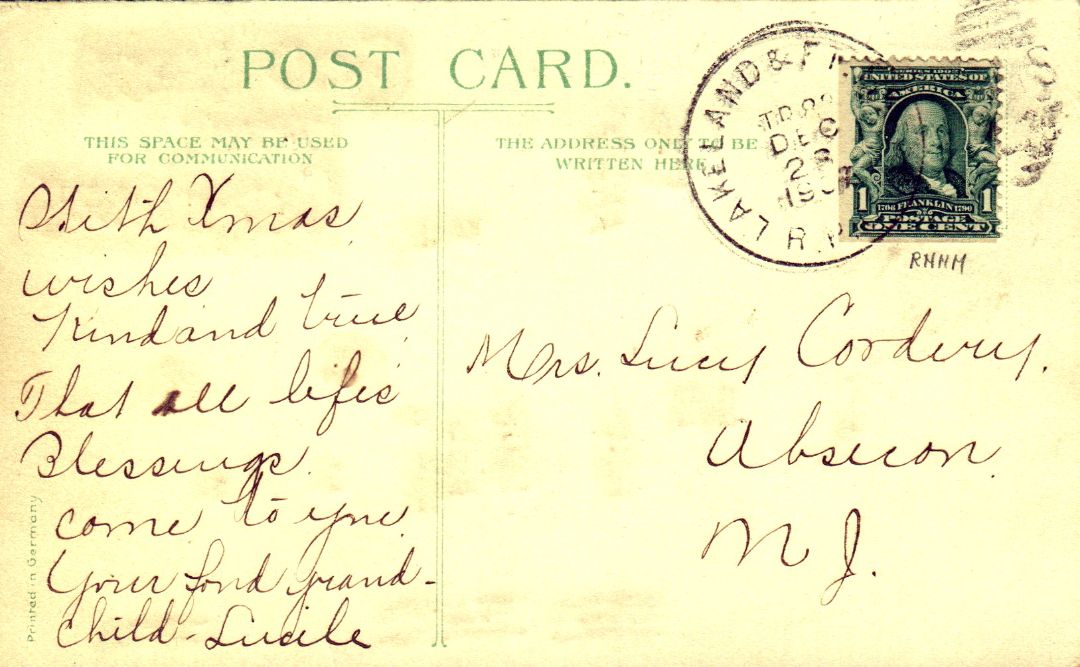 POST CARD.
THIS SPACE MAY BE USED
FOR COMMUNICATION
THE ADDRESS ONLY TO BE
WRITTEN HERE
LAKELAND & FT.
R.P.
DEC
190
SERIES 1902
UNITED STATES OF
AMERICA
1 1
1706 FRANKLIN 1790
POSTAGE
ONE CENT
RHHM
With Xmas
wishes
Kind and true
That all life's
Blessings
come to you
Your fond grand-
child - Lucile
Mrs. Lucy Cordery.
Absecon
N J.
Printed in Germany